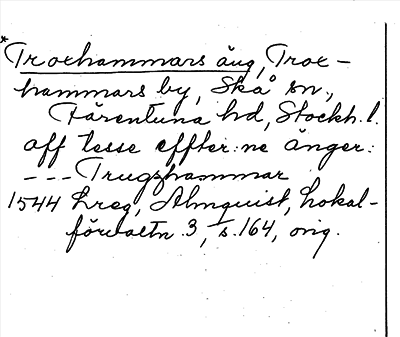 *Troxhammars äng, Trox-
hammars by, Skå sn.,
Färentuna hd, Stockh. l.
aff tesse effter:ne änger:
--- Trugzhammar
1544 hreg, Almquist, Lokal-
förvaltn. 3, s. 164, orig.